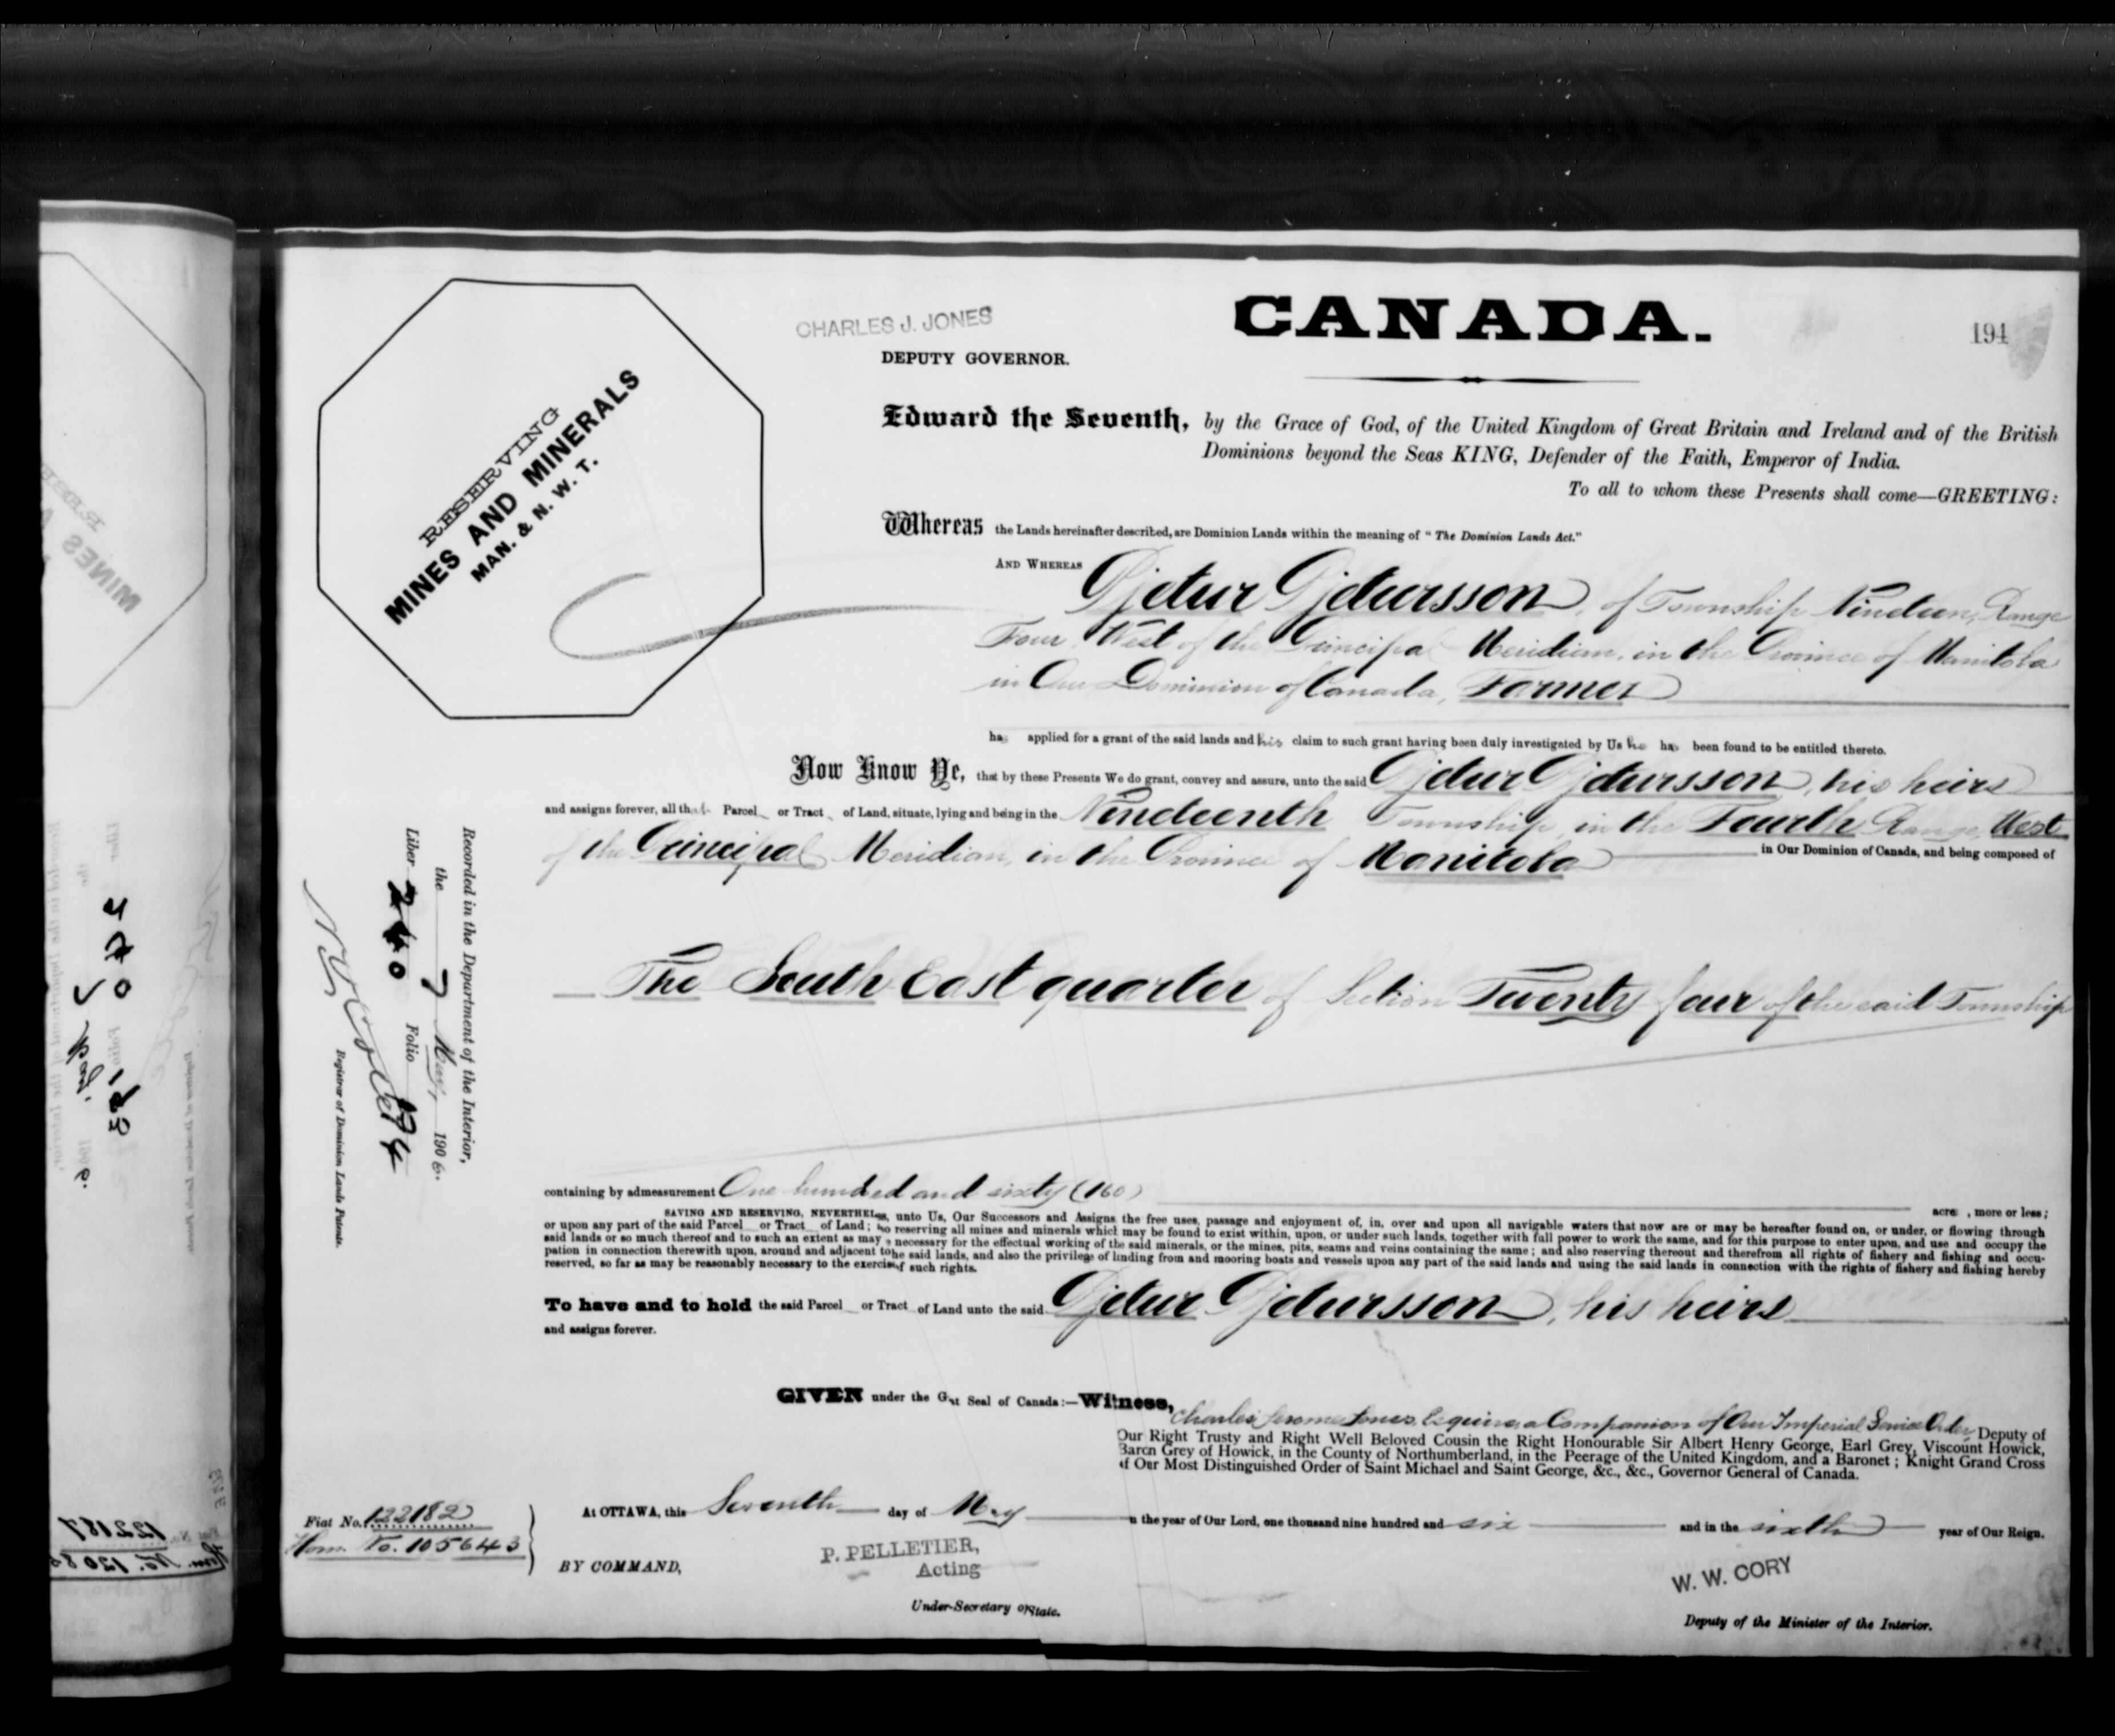 CANADA.
CHARLES J. JONES
194
DEPUTY GOVERNOR.
RESERVING
MINES AND MINERALS
MAN. & N. W. T.
Edward the Seventh, by the Grace of God, of the United Kingdom of Great Britain and Ireland and of the British
Dominions beyond the Seas KING, Defender of the Faith, Emperor of India.
To all to whom these Presents shall come—GREETING:
Whereas the Lands hereinafter described, are Dominion Lands within the meaning of "The Dominion Lands Act."
AND WHEREAS Gjetur Gjetursson, of Township Nineteen, Range
Four, West of the Principal Meridian, in the Province of Manitoba
in Our Dominion of Canada, Farmer
has applied for a grant of the said lands and his claim to such grant having been duly investigated by Us he has been found to be entitled thereto.
Now Know Ye, that by these Presents We do grant, convey and assure, unto the said Gjetur Gjetursson, his heirs
and assigns forever, all that Parcel or Tract of Land, situate, lying and being in the Nineteenth Township, in the Fourth Range, West
of the Principal Meridian, in the Province of Manitoba in Our Dominion of Canada, and being composed of
The South East quarter of Section Twenty four of the said Township
containing by admeasurement One hundred and sixty (160) acre , more or less;
SAVING AND RESERVING, NEVERTHELESS, unto Us, Our Successors and Assigns the free uses, passage and enjoyment of, in, over and upon all navigable waters that now are or may be hereafter found on, or under, or flowing through
or upon any part of the said Parcel or Tract of Land; also reserving all mines and minerals which may be found to exist within, upon, or under such lands, together with full power to work the same, and for this purpose to enter upon, and use and occupy the
said lands or so much thereof and to such an extent as may be necessary for the effectual working of the said minerals, or the mines, pits, seams and veins containing the same; and also reserving thereout and therefrom all rights of fishery and fishing and occu-
pation in connection therewith upon, around and adjacent to the said lands, and also the privilege of landing from and mooring boats and vessels upon any part of the said lands and using the said lands in connection with the rights of fishery and fishing hereby
reserved, so far as may be reasonably necessary to the exercise of such rights.
To have and to hold the said Parcel or Tract of Land unto the said Gjetur Gjetursson, his heirs
and assigns forever.
GIVEN under the Great Seal of Canada:—Witness,
Charles Jerome Jones, Esquire, a Companion of Our Imperial Service Order, Deputy of
Our Right Trusty and Right Well Beloved Cousin the Right Honourable Sir Albert Henry George, Earl Grey, Viscount Howick,
Baron Grey of Howick, in the County of Northumberland, in the Peerage of the United Kingdom, and a Baronet; Knight Grand Cross
of Our Most Distinguished Order of Saint Michael and Saint George, &c., &c., Governor General of Canada.
At OTTAWA, this Seventh day of May in the year of Our Lord, one thousand nine hundred and six and in the sixth year of Our Reign.
BY COMMAND,
P. PELLETIER,
Acting
Under-Secretary of State.
W. W. CORY
Deputy of the Minister of the Interior.
Fiat No. 122182
Hom. No. 105643
Recorded in the Department of the Interior,
the 7 May, 1906.
Liber 240 Folio 194
Registrar of Dominion Lands Patents.